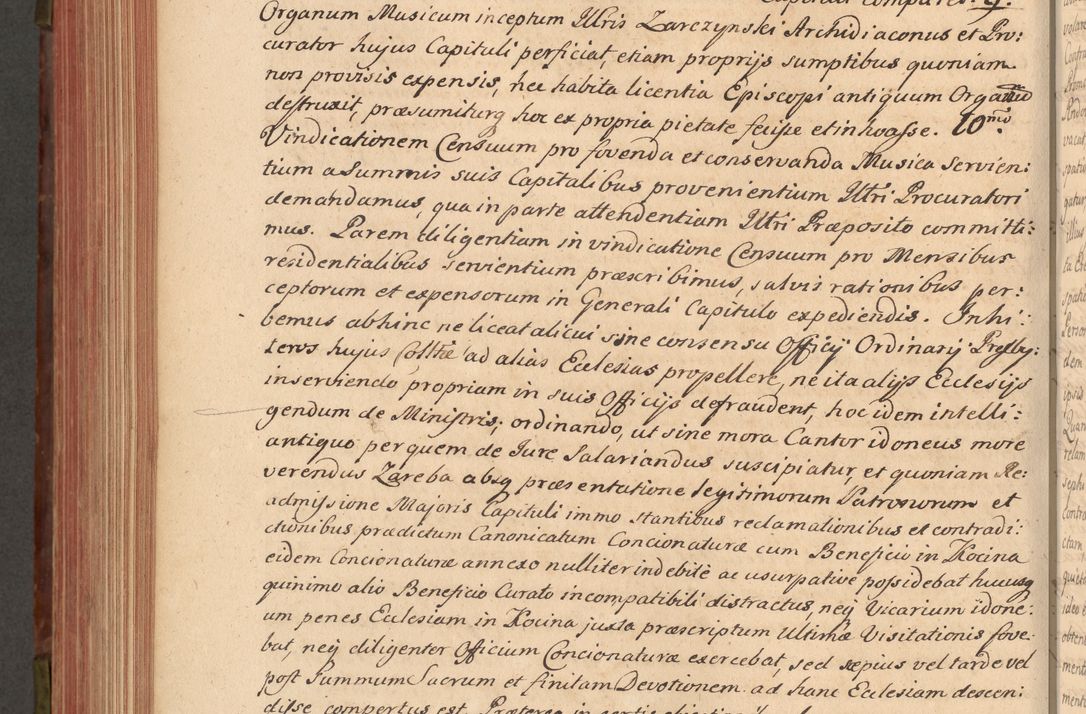 Capituli compares. 9.
Organum Musicum inceptum Illris Zarczynski Archidiaconus et Pro:
curator hujus Capituli perficiat, etiam proprijs sumptibus quoniam
non provisis expensis, nec habita licentia Episcopi antiquum Organum
destruxit, præsumiturq hoc ex propria pietate fecisse et inchoasse. 10mo.
Vindicationem Censuum pro fovenda et conservanda Musica servien:
tium a Summis suis Capitalibus provenientium Illri Procuratori
demandamus, qua in parte attendentiam Illri Præposito committi:
mus. Parem diligentiam in vindicatione Censuum pro Mensibus
residentialibus servientium præscribimus, salvis rationibus per:
ceptorum et expensorum in Generali Capitulo expediendis. Inhi:
bemus abhinc ne liceat alicui sine consensu Officij Ordinarij Presby:
teros hujus Colltæ ad alias Ecclesias propellere, ne ita alijs Ecclesijs
inserviendo, propriam in suis Officijs defraudent, hoc idem intelli:
gendum de Ministris; ordinando, ut sine mora Cantor idoneus more
antiquo, per quem de Jure Salariandus suscipiatur, et quoniam Re:
verendus Zareba absq præsentatione legitimorum Patronorum et
admissione Majoris Capituli immo stantibus reclamationibus et contradi:
ctionibus prædictum Canonicatum Concionaturæ cum Beneficio in Kocina
eidem Concionaturæ annexo nulliter indebitè ac usurpative possidebat hucusq
quinimo alio Beneficio Curato incompatibili distractus, neq Vicarium idone:
um penes Ecclesiam in Kocina juxta præscriptum Ultimæ Visitationis fove:
bat, neq diligenter Officium Concionaturæ exercebat, sed sæpius vel tarde vel
post Summum Sacrum et finitam Devotionem ad hanc Ecclesiam descen:
disse compertus est. Præterea in